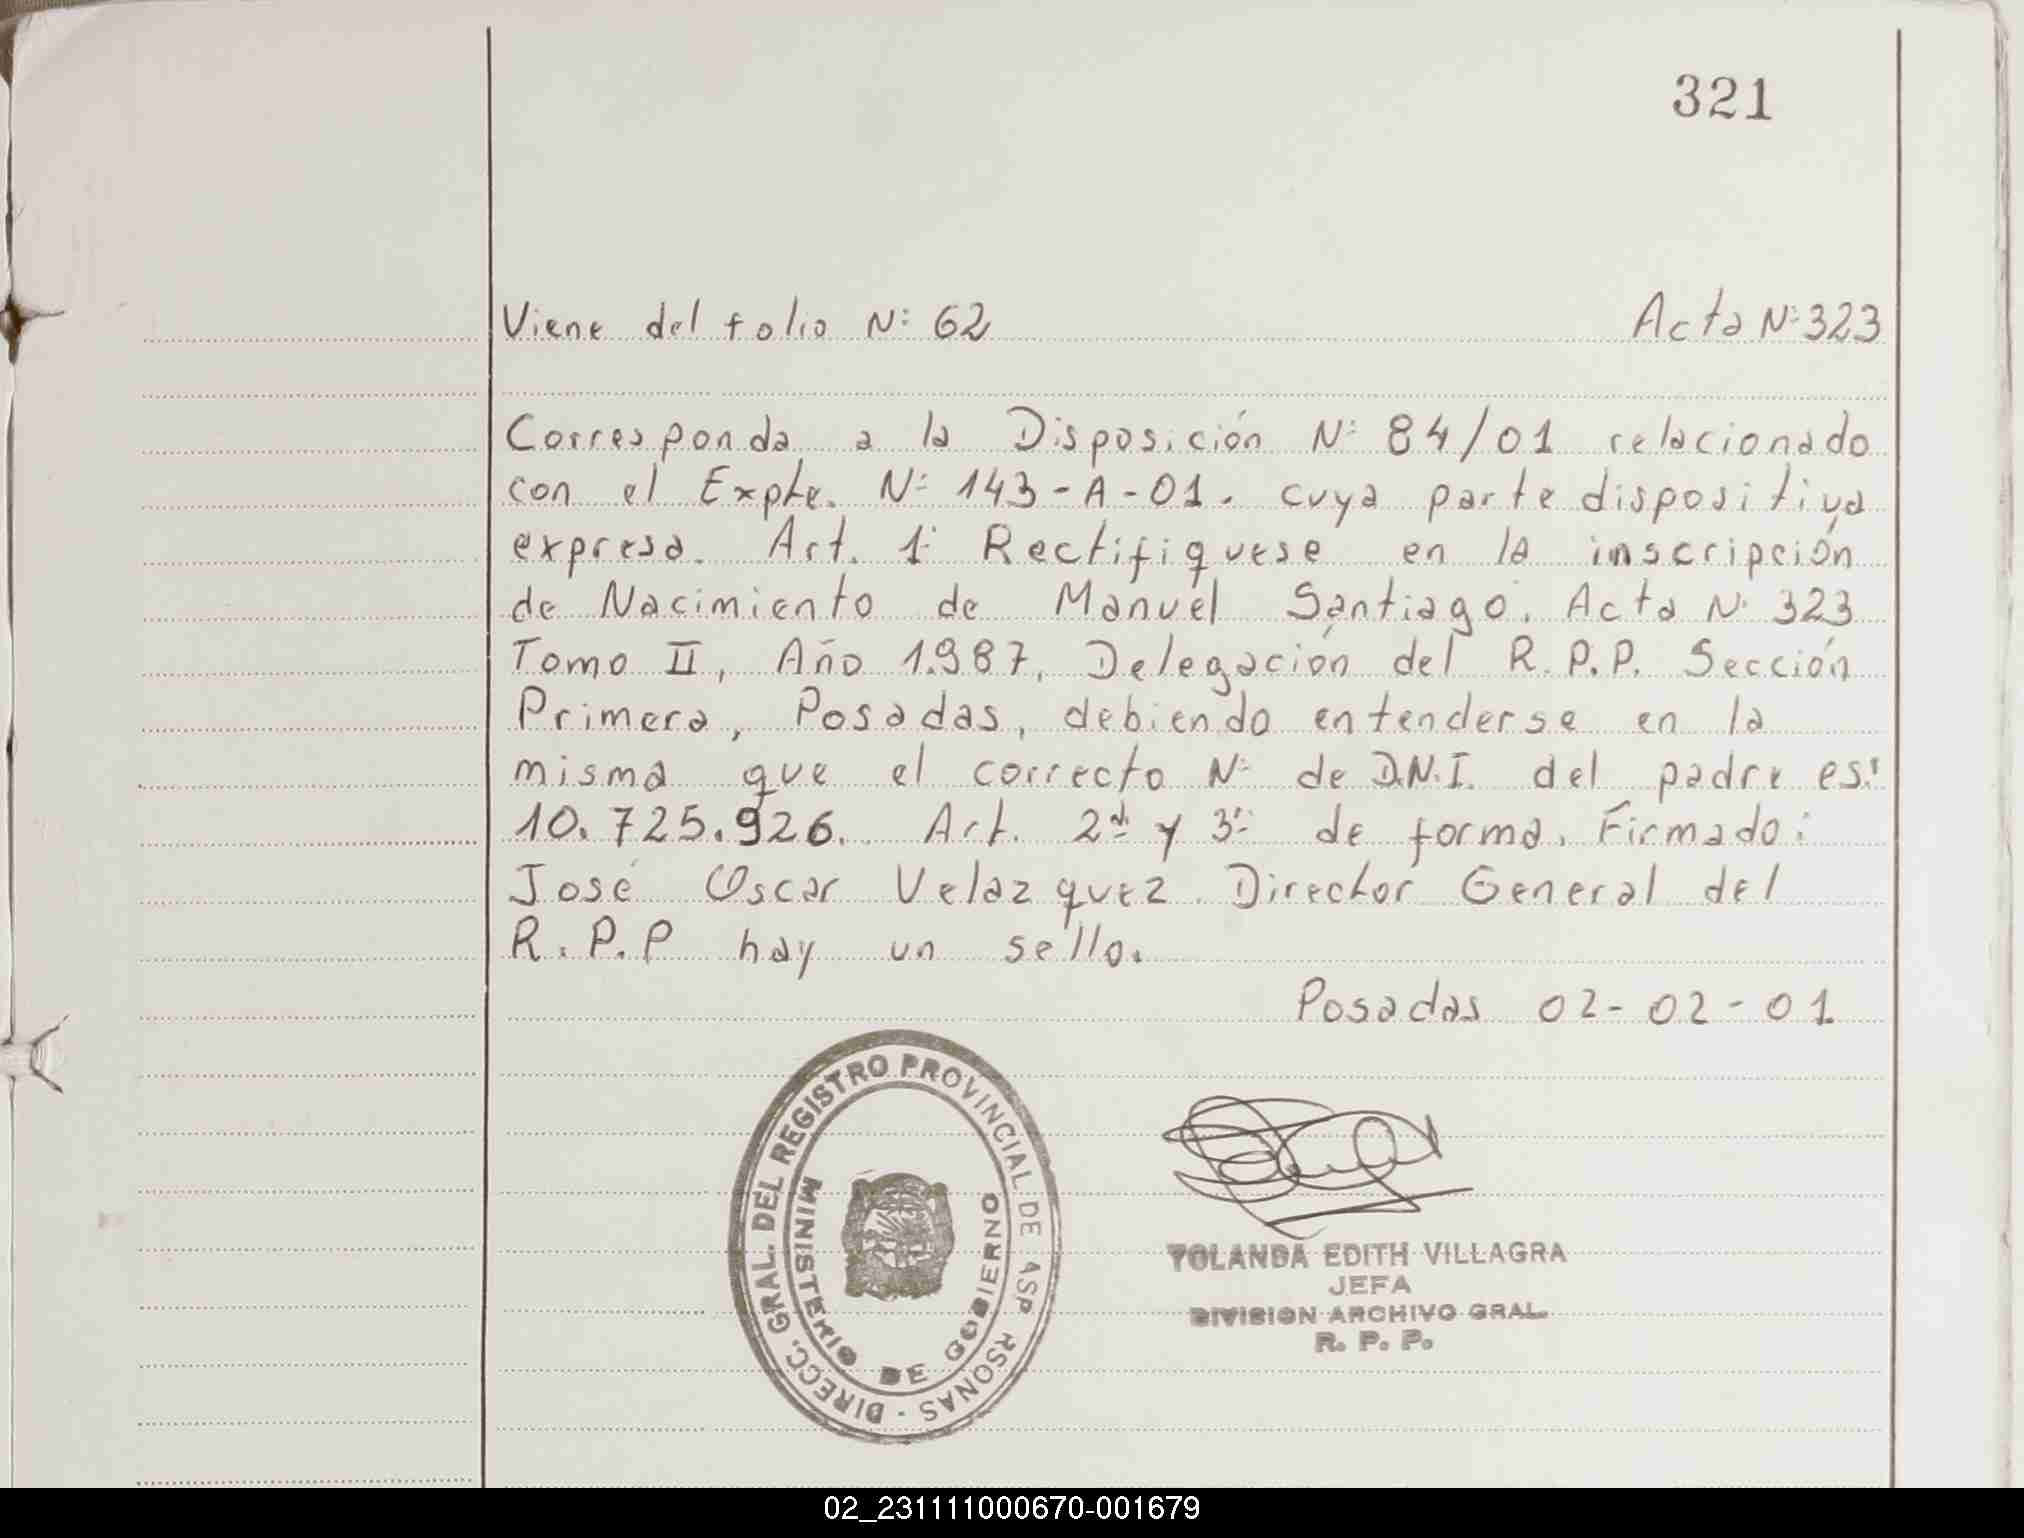 321
Viene del folio N: 62 Acta N: 323
Corresponda a la Disposición N: 84/01 relacionado
con el Expte. N: 143-A-01. cuya parte dispositiva
expresa. Art. 1° Rectifiquese en la inscripción
de Nacimiento de Manuel Santiago. Acta N: 323
Tomo II, Año 1.987, Delegación del R.P.P. Sección
Primera, Posadas, debiendo entenderse en la
misma que el correcto N: de D.N.I. del padre es:
10.725.926. Art. 2do y 3ro de forma. Firmado:
José Oscar Velazquez Director General del
R.P.P hay un sello.
Posadas 02-02-01
DIRECC. GRAL. DEL REGISTRO PROVINCIAL DE RSONAS -
MINISTERIO DE GOBIERNO
YOLANDA EDITH VILLAGRA
JEFA
DIVISION ARCHIVO GRAL.
R. P. P.
02_231111000670-001679